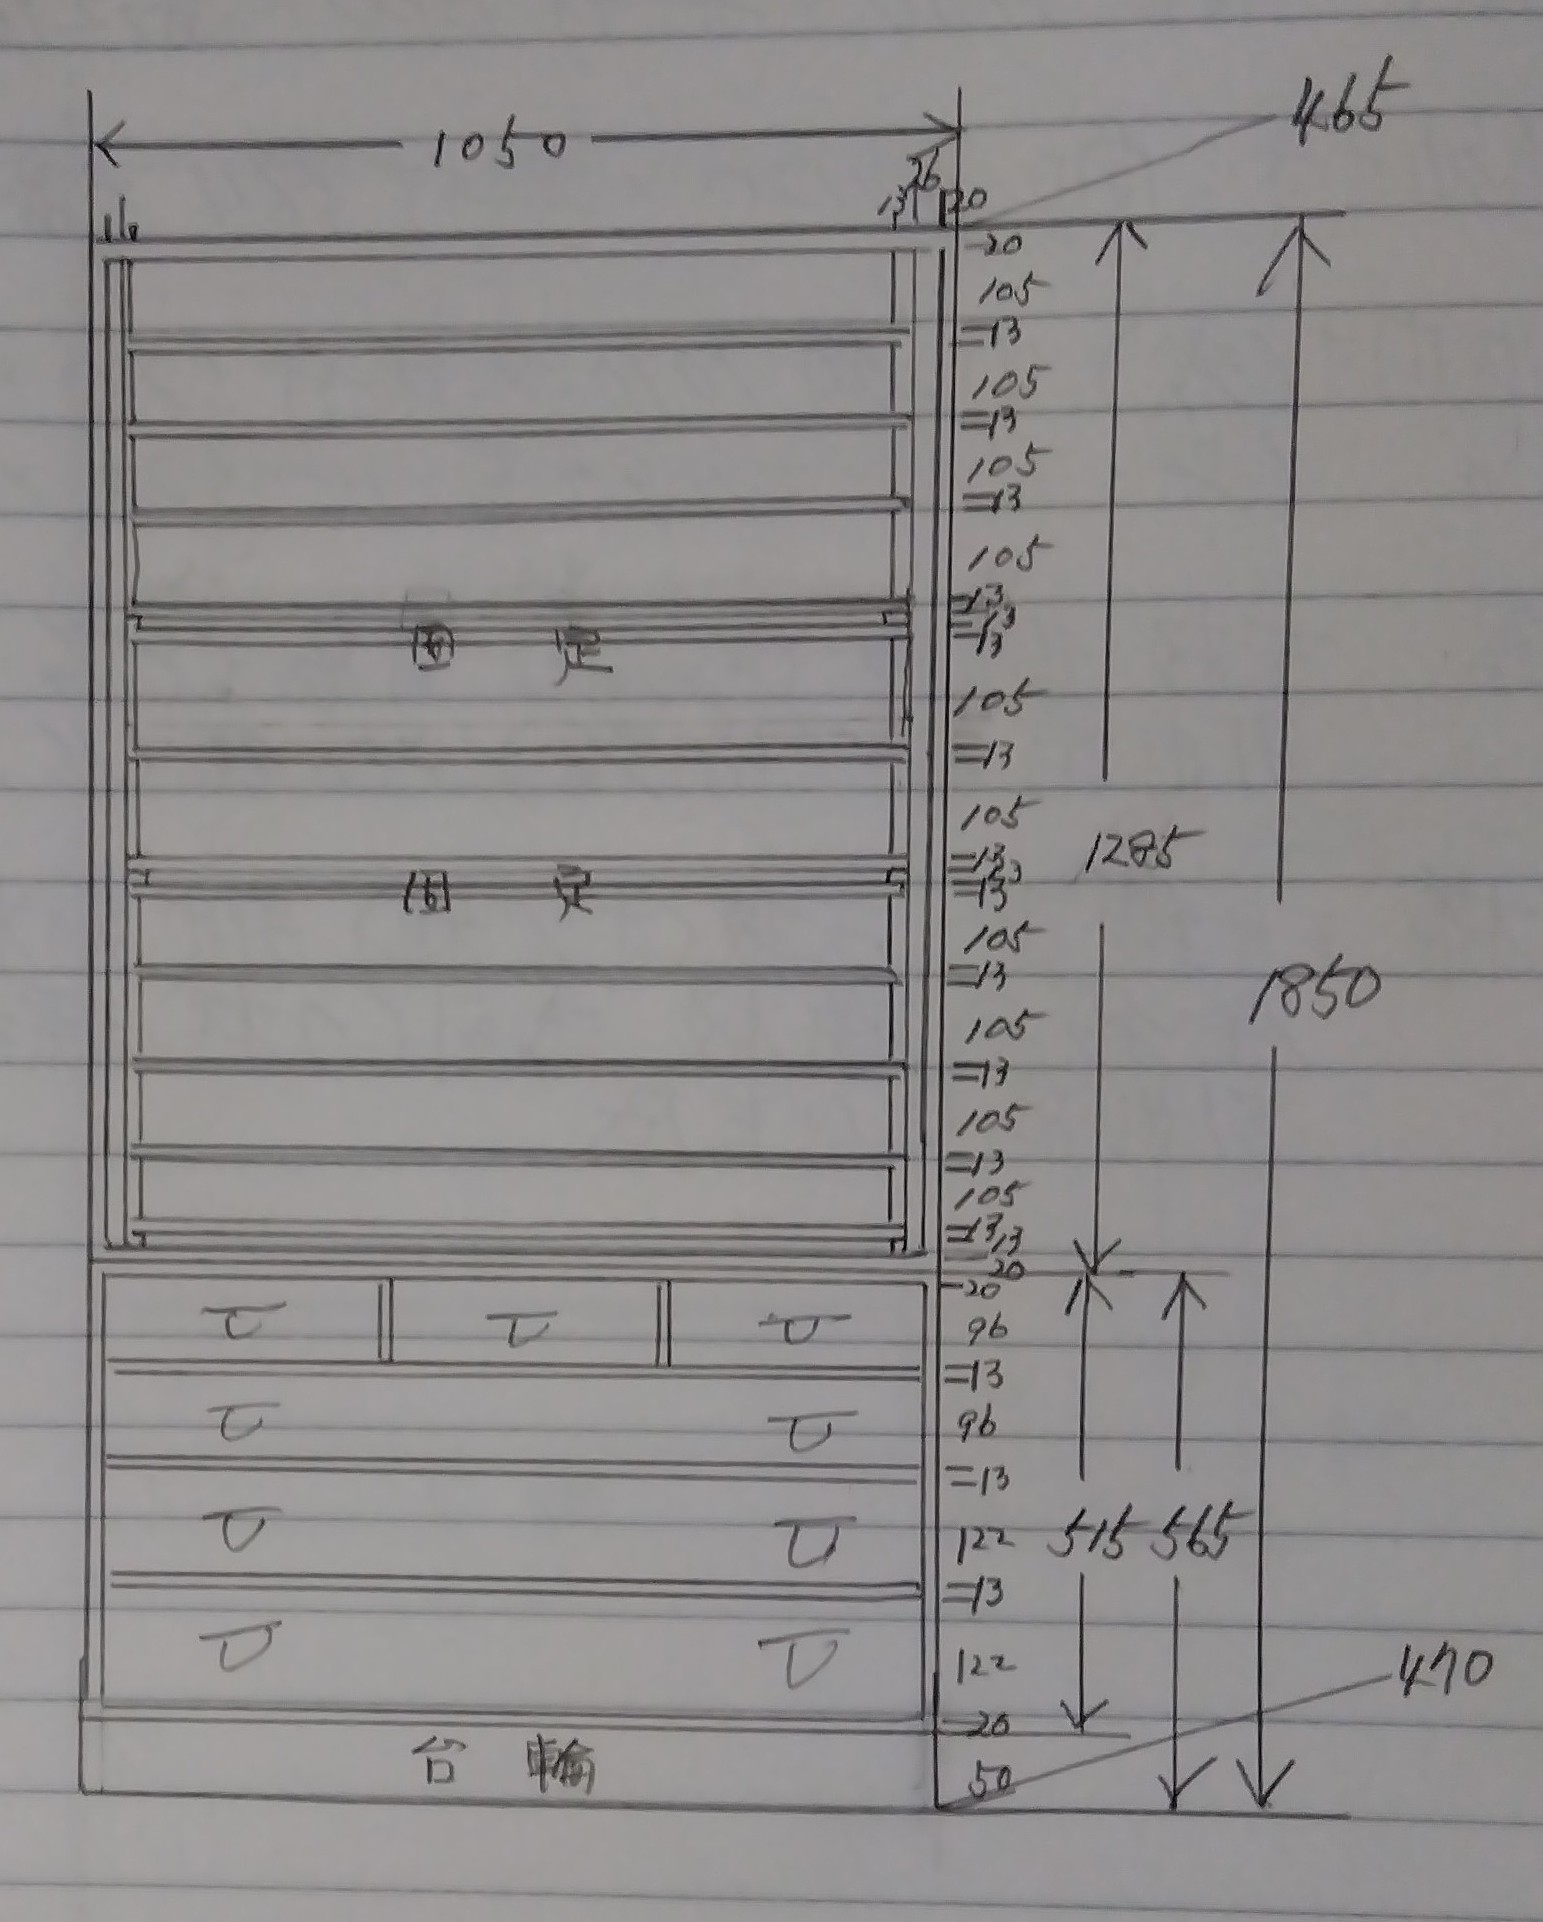 1050
465
26
13 20
20
105
13
105
13
105
13
105
13
13
13
固 定
105
13
105
13
13
13
固 定
105
13
105
13
105
13
105
13
13
20
1285
1850
20
96
13
96
13
122
13
122
20
515 565
470
台 輪
50